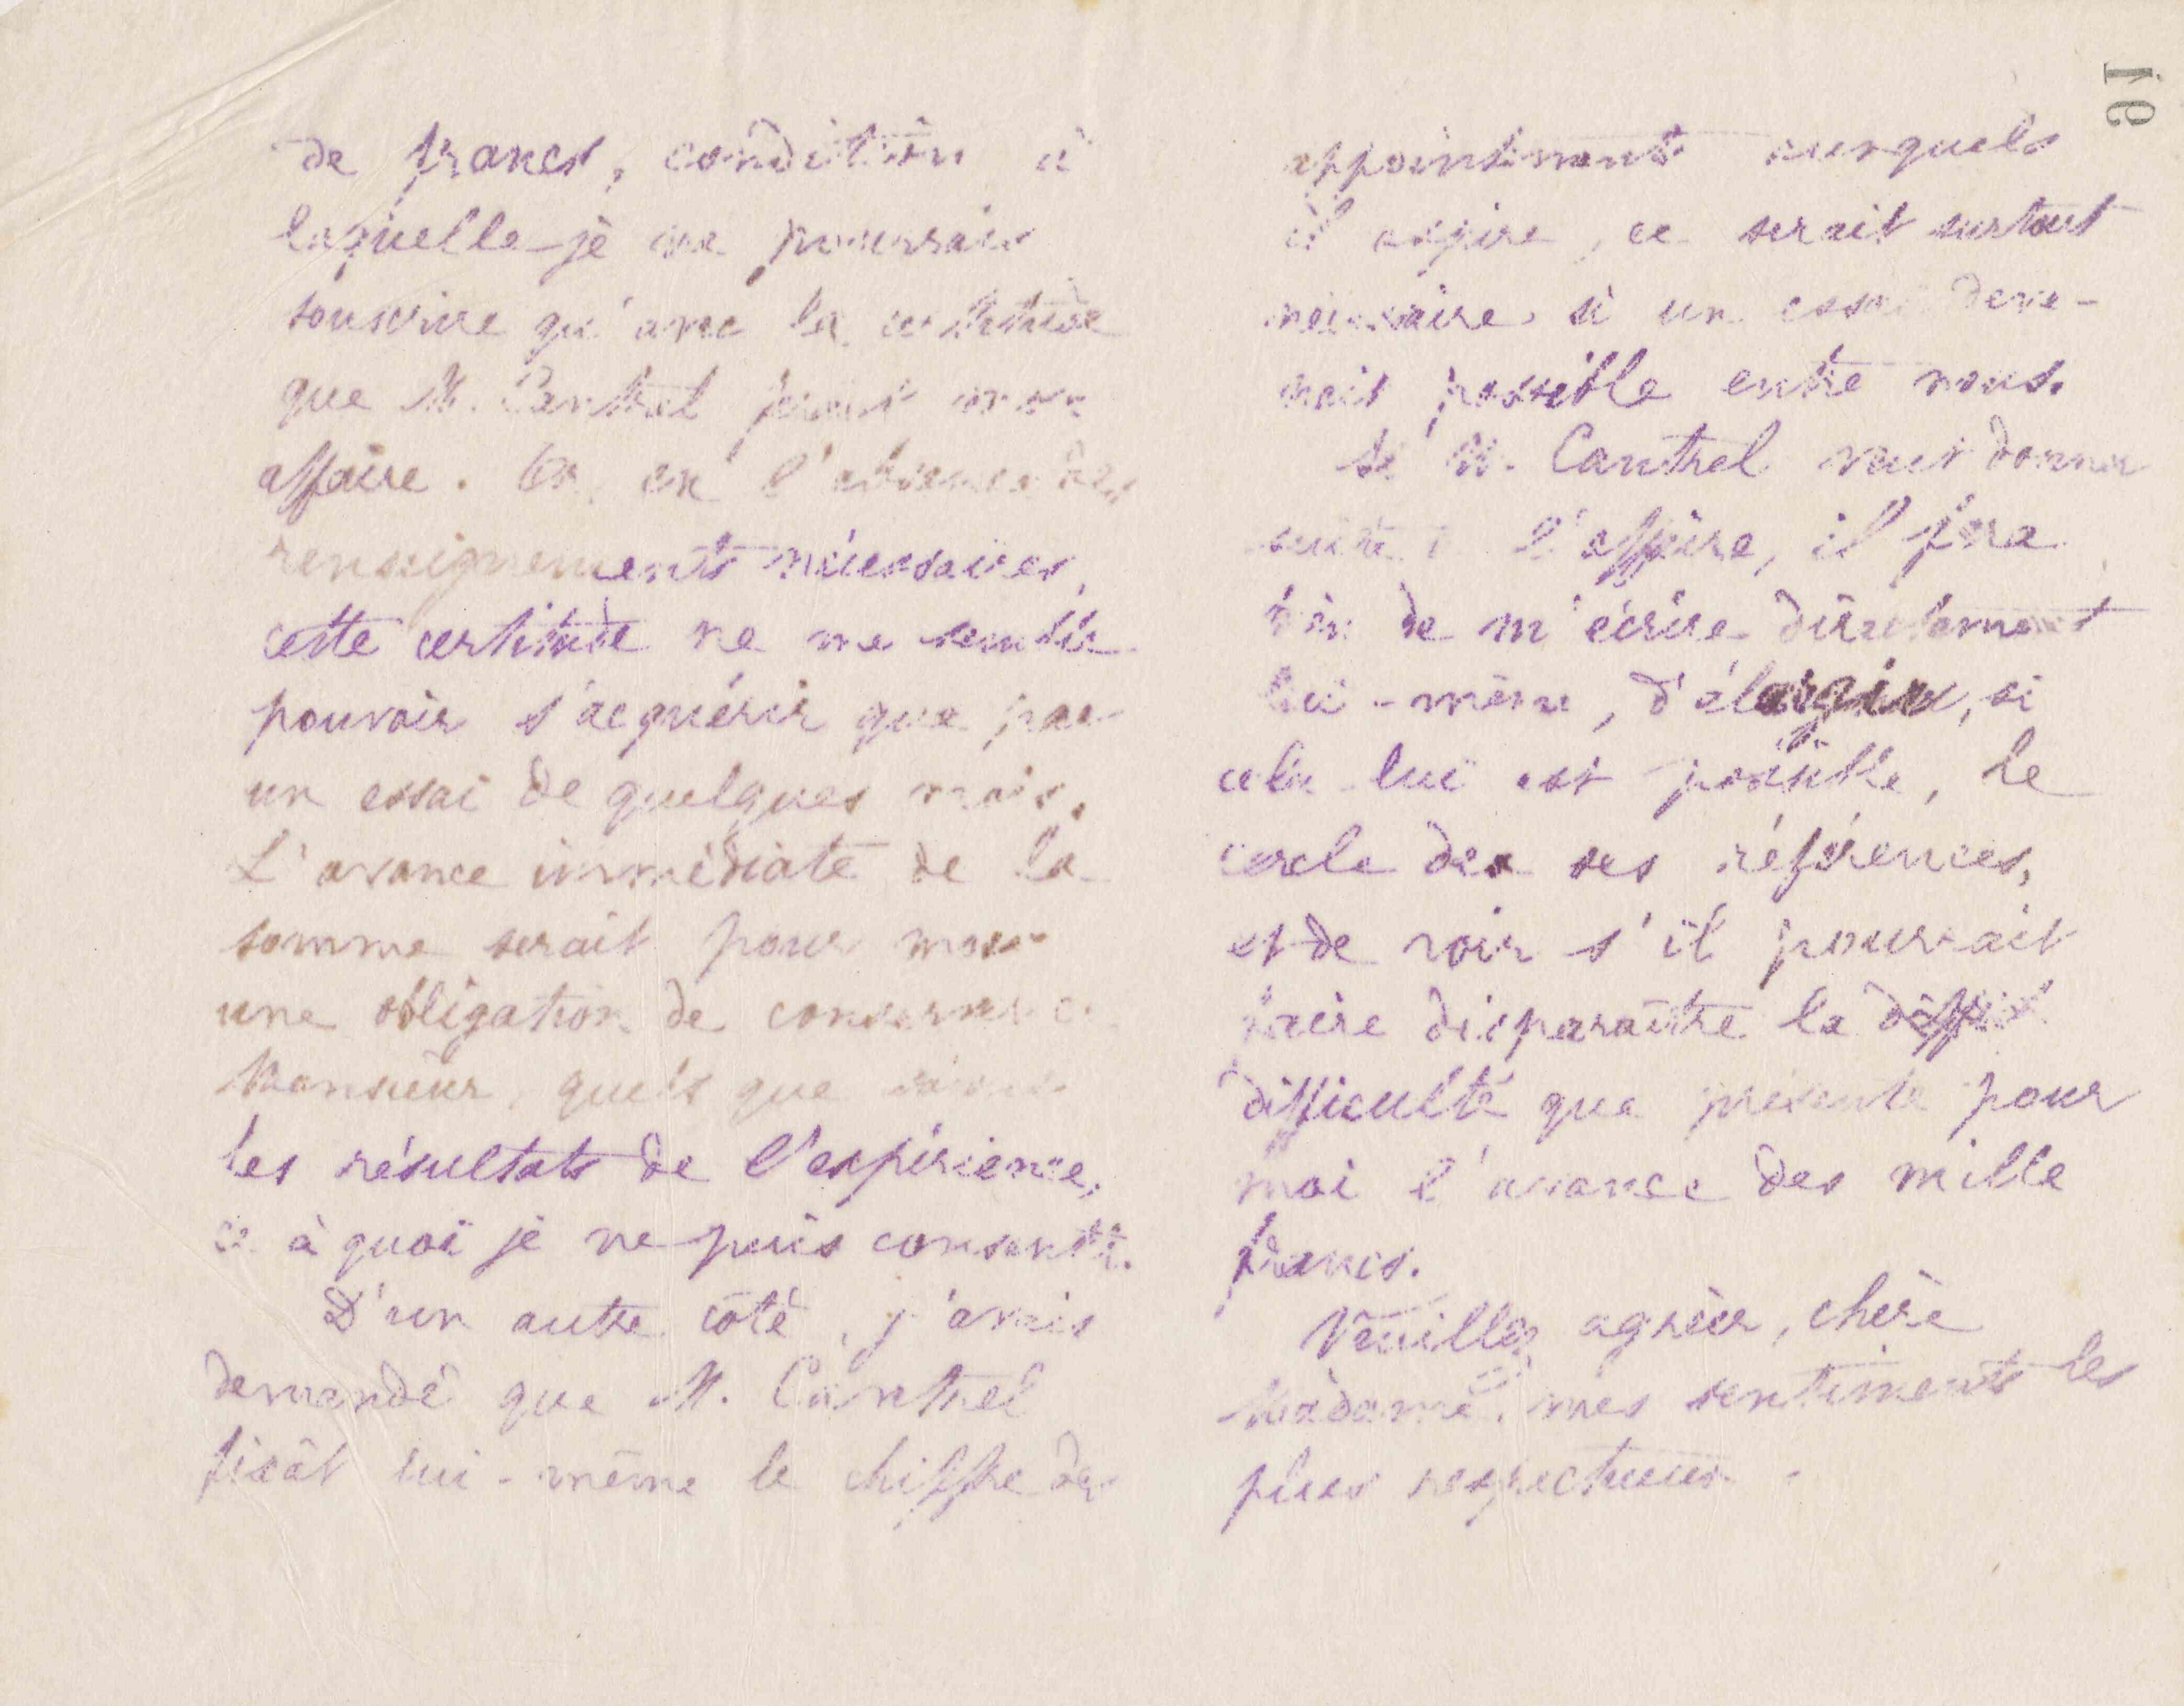 de francs, condition à
laquelle je ne pourrais
souscrire qu'avec la certitude
que M. Cantrel ferait mon
affaire. Or, en l'absence des
renseignements nécessaires,
cette certitude ne me semble
pouvoir s'acquérir que par
un essai de quelques mois.
L'avance immédiate de la
somme serait pour moi
une obligation de conserver ce
Monsieur, quels que soient
les résultats de l'expérience,
ce à quoi je ne puis consentir.
D'un autre côté, j'avais
demandé que M. Cantrel
fixât lui-même le chiffre des
appointements auxquels
il aspire, ce serait surtout
nécessaire si un essai deve-
nait possible entre nous.
Si M. Cantrel veut donner
suite à l'affaire, il fera
bien de m'écrire directement
lui-même, d'élargir, si
cela lui est possible, le
cercle de ses références,
et de voir s'il pourrait
faire disparaître la
difficulté que présente pour
moi l'avance des mille
francs.
Veuillez agréer, chère
Madame, mes sentiments les
plus respectueux.
91